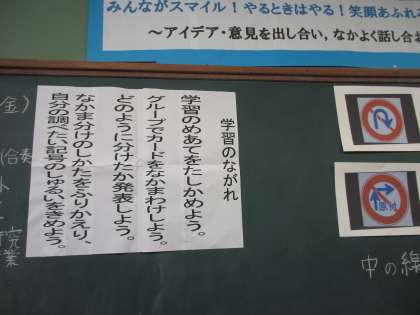 みんながスマイル！やるときはやる！笑顔あふれ
～アイデア・意見を出し合い，なかよく話し合お
学習のながれ
学習のめあてをたしかめよう。
グループでカードをなかまわけしよう。
どのように分けたか発表しよう。
なかま分けのしかたをふりかえり、
自分の調べたい記号のしゅるいをきめよう。
原付
中の線
（金）
業